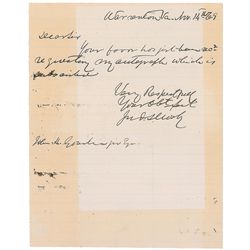 Warrenton Va. Nov. 14th /69
Dear Sir
Your favor has just been
requesting my autograph which is
Very Respectfully
Your Obt Servt
Jno S Mosby
John